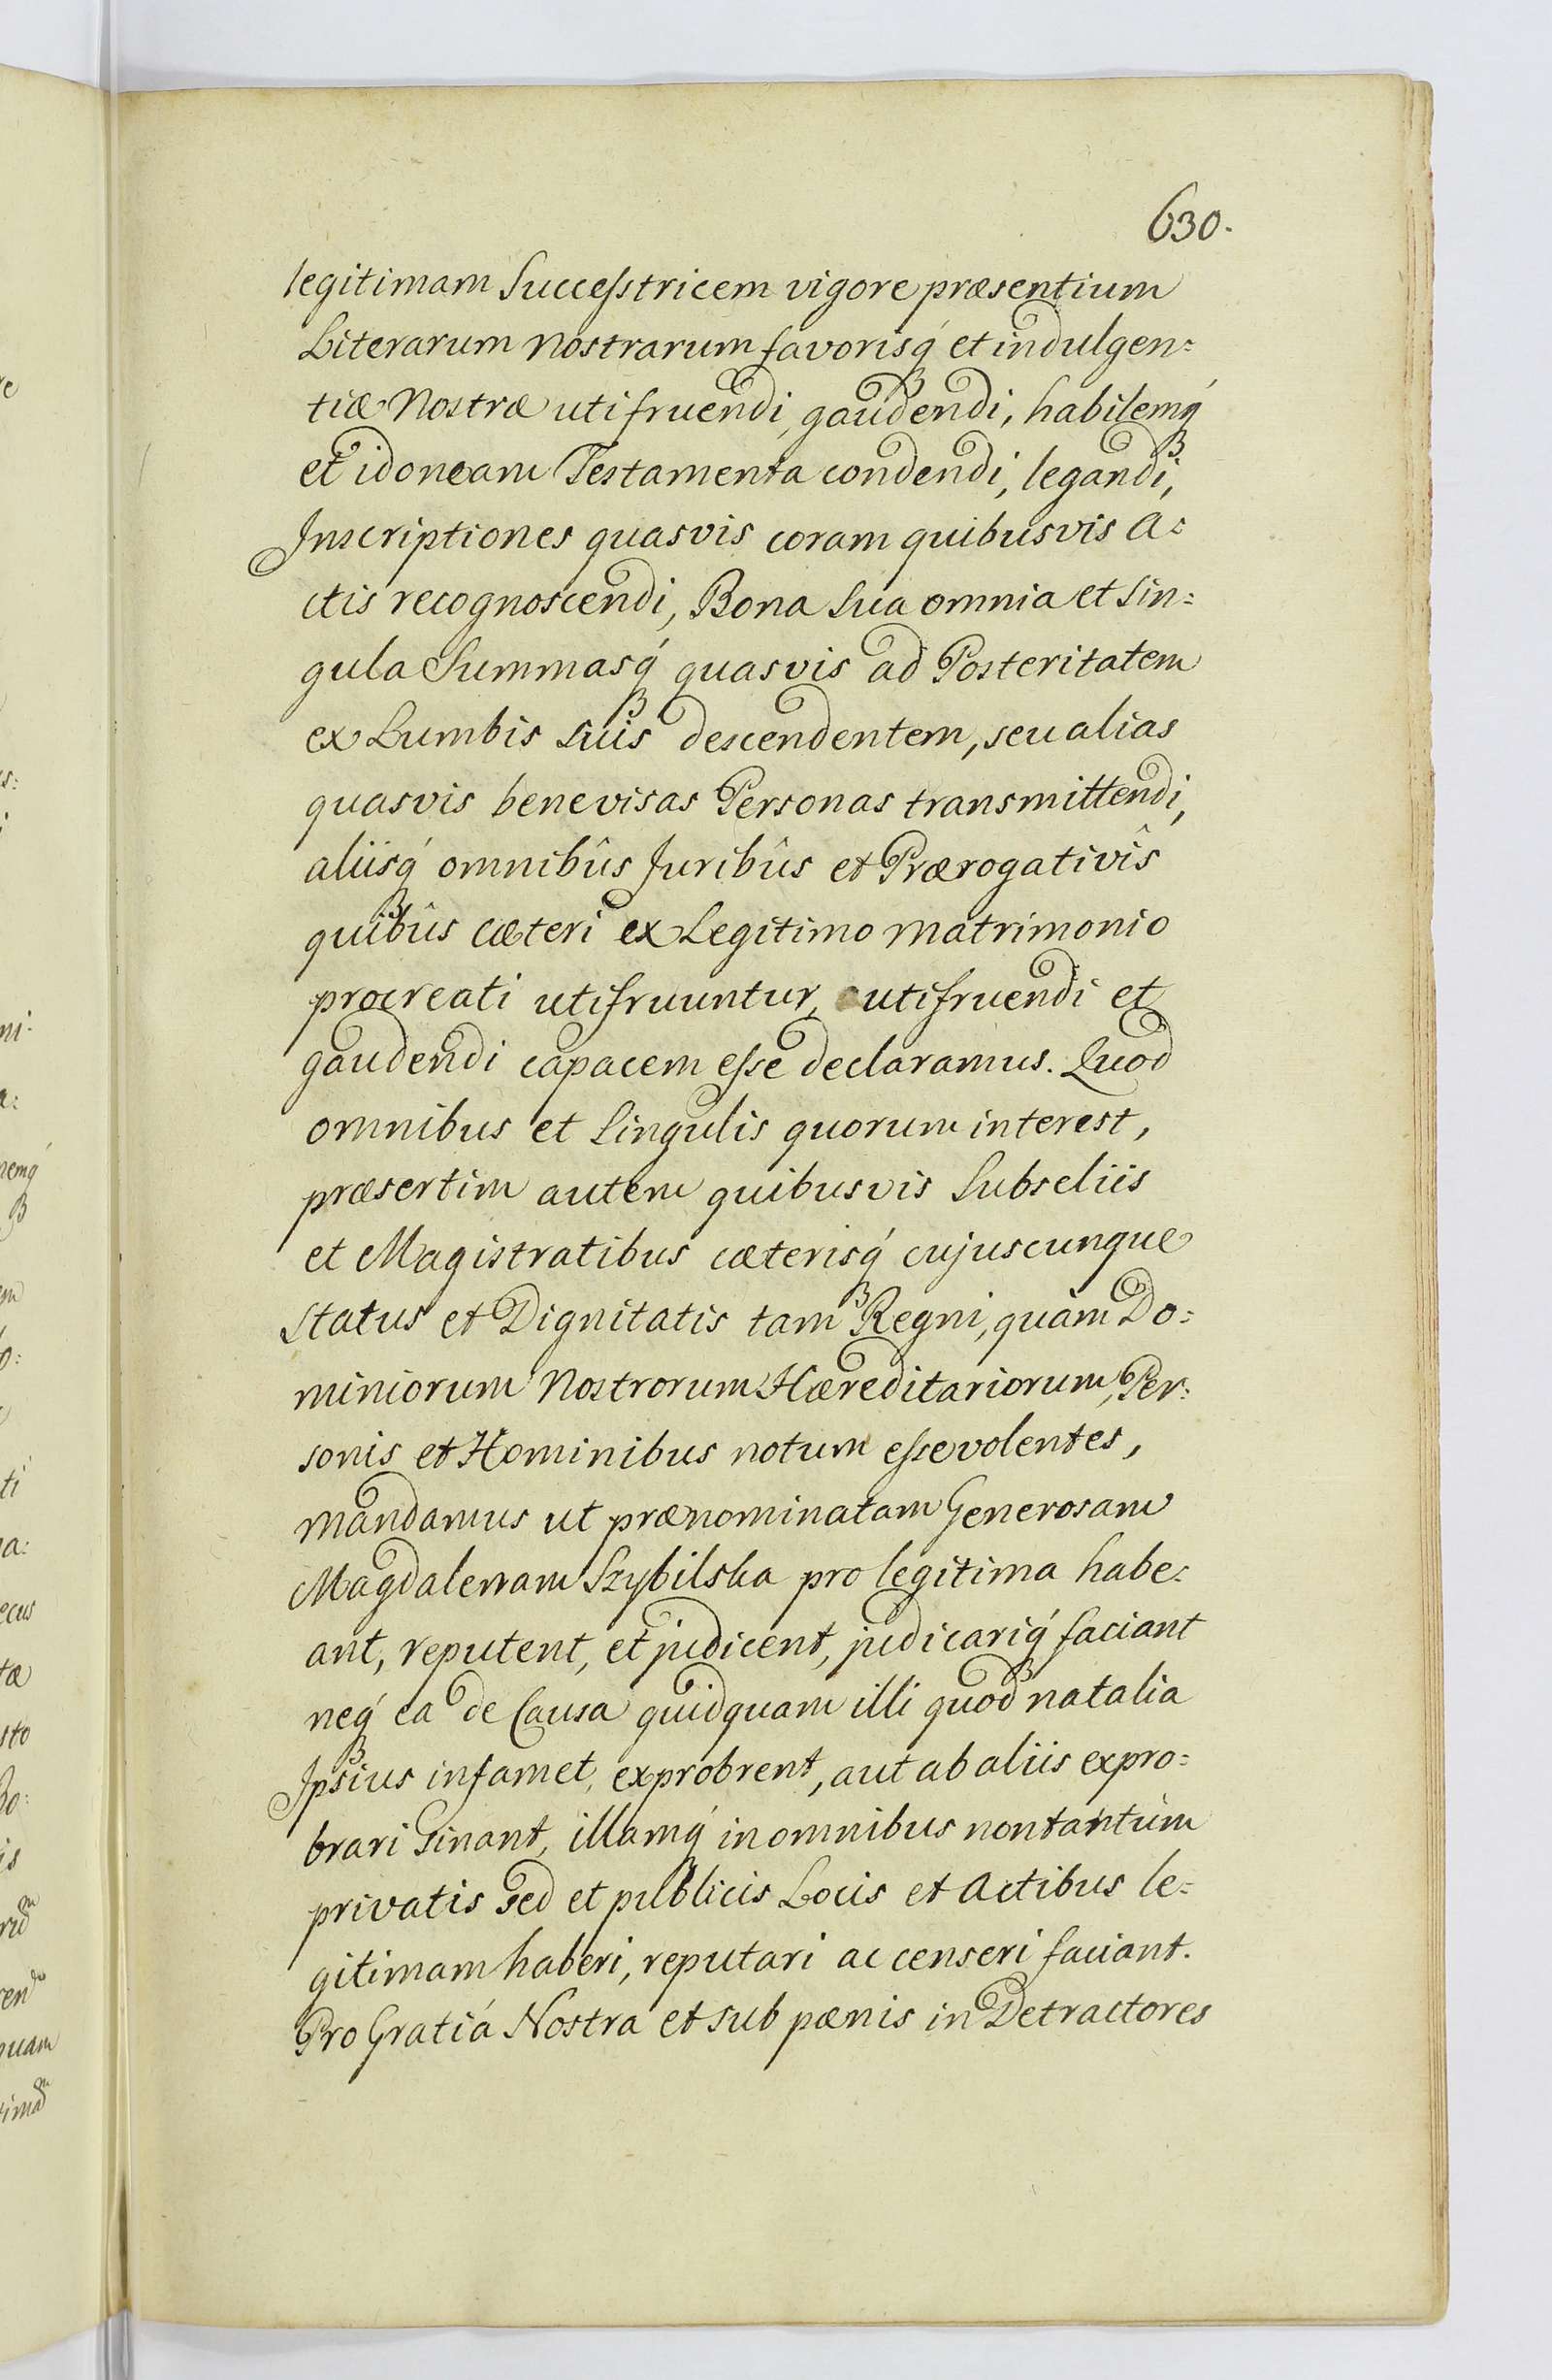 630.
legitimam Successtricem vigore præsentium
Literarum Nostrarum favorisq́ et indulgen=
tiæ Nostræ utifruendi, gaudendi, habilemq́
et idoneam Testamenta condendi, legandi,
Inscriptiones quasvis coram quibusvis A=
ctis recognoscendi, Bona sua omnia et sin=
gula Summasq́ quasvis ad Posteritatem
ex Lumbis suis descendentem, seu alias
quasvis benevisas Personas transmittendi,
aliisq́ omnibûs Juribûs et Prærogativîs
quibûs cæteri ex Legitimo Matrimonio
procreati utifruuntur, utifruendi et
gaudendi capacem esse declaramus. Quod
omnibus et singulis quorum interest,
præsertim autem quibusvis Subseliis
et Magistratibus cæterisq́ cujuscunque
Status et Dignitatis tam Regni, quàm Do=
miniorum Nostrorum Hæreditariorum, Per=
sonis et Hominibus notum esse volentes,
mandamus ut prænominatam Generosam
Magdalenam Szybilska pro legitima habe=
ant, reputent, et judicent, judicariq́ faciant
neq́ ea de Causa quidquam illi quod natalia
Ipsius infamet, exprobrent, aut ab aliis expro=
brari sinant, illamq́ in omnibus non tantùm
privatis sed et publicis Locis et Actibus le=
gitimam haberi, reputari ac censeri faciant.
Pro Gratiá Nostra et sub pænis in Detractores